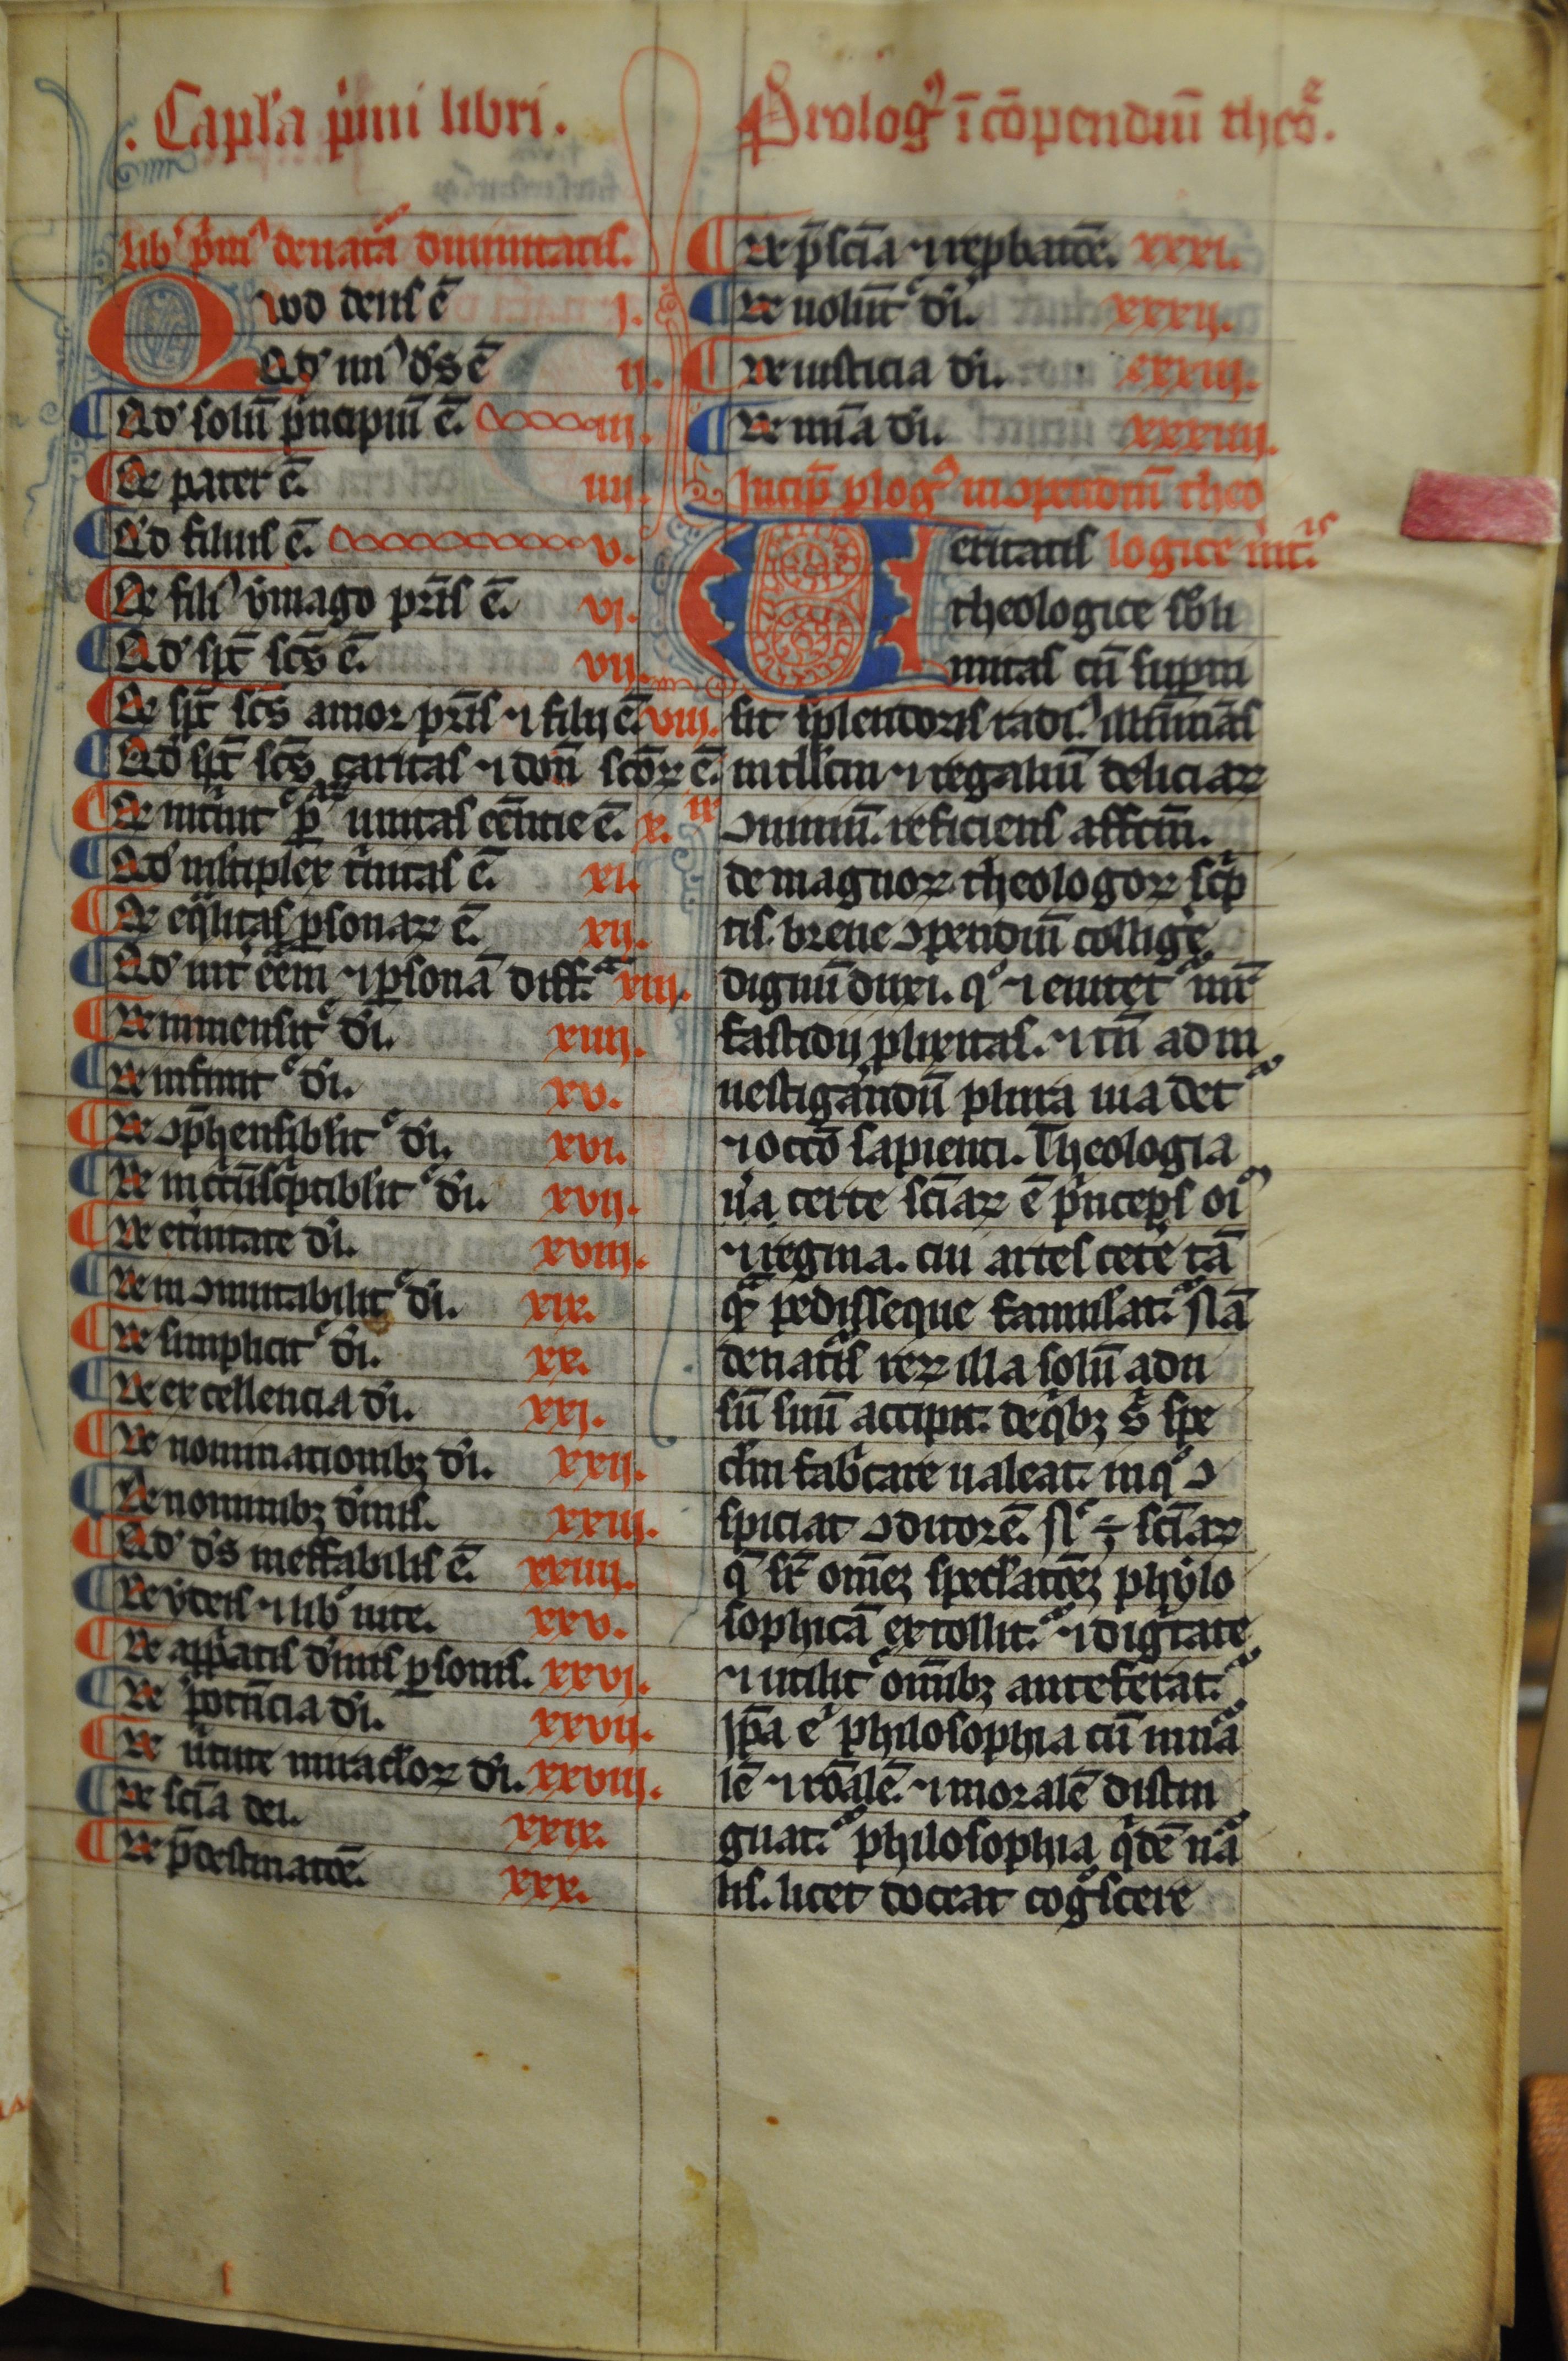 . Capl'a p'mi libri .
lib' p'm' de nat'a diuinitatis.
Quod deus ē j.
Qd' un' d's ē ij.
Qd' solū p'ncipiū ē. iij.
Qd' pater ē. iiij.
Qd filius ē. v.
Qd' fili' ymago pr̄is ē. vj.
Qd' spc̄ sc̄s ē. vij.
Qd' spc̄ sc̄s amor pr̄is ⁊ filij ē viij.
Qd' spc̄ sc̄s caritas ⁊ donū sc̄oꝝ ē. ix
Qd' unitas ēē̄ntie ē. x.
Qd' mltiplex t'nitas ē. xi.
Qd' eq̄litas ꝑsonaꝝ ē. xij.
Qd' int' ēēm ⁊ ꝑsonā diff.ᵃ xiij.
De immensit' di. xiiij.
De infinit' di. xv.
De ꝯp̄hensiblit' di. xvi.
De inc'cūsc'ptiblit' di. xvij.
De et'nitate di. xviij.
De inꝯmutabilit' di. xix.
De simplicit' di. xx.
De excellencia di. xxj.
De nominationibꝫ di. xxij.
De nominibꝫ diuis. xxiij.
Qd' d's ineffabilis ē. xxiiij.
De ydeis ⁊ lib' uite. xxv.
De app̄atis diuis ꝑsonis. xxvj.
De potn̄cia di. xxvij.
De u'tute miraclo'ꝝ di. xxviij.
De sci̅a dei. xxix.
De p̄destinatōe. xxx.
Prolog' ī cōpendiū theo'.
De p̄sci̅a ⁊ reꝓbatōe. xxxi.
De uolūt' di. xxxij.
De iusticia di. xxxiij.
De mīa di. xxxiiij.
Incip̄ ꝓlog' in ꝯpendiū theo
logice u'it.'is
Veritatis
theologice sbli
mitas cū sup̄ni
sit splendoris radi' illūinās
intllc̄m ⁊ regaliū deliciaꝝ
ꝯuiuiū. reficiens affc̄m.
de magnoꝝ theologoꝝ sc'p
tis. breue ꝯpendiū collig'e
dignū duxi. q' ⁊ euitet' m̄r
fastidij ꝓlixitas. ⁊ tn̄ ad in
uestigandū plura uia det'
⁊ occō sapienti. Theologia
u'a certe sci̅aꝝ ē p'nceps oi'
⁊ regina. cui artes cet'e tā
qᵃ̄ pedisseque famulāt.' Nā
de nat'is reꝝ illa solū ad u
sū suū accipit. de q'bꝫ s' spe
clm̄ fab'care ualeat. in q' ꝯ
spiciat ꝯditorē. H' ÷ sci̅aꝝ
q̄ sr̄ om̄eꝫ speclatōeꝫ phylo
sophicā extollit.' ⁊ dig'tate
⁊ utilit' om̄ibꝫ antefetat.'
Ip̄a e' philosophia cū in nā
lē ⁊ rōalē. ⁊ moralē distin
guat.' philosophia q'dē nā
lis. licet doceat cog'scere